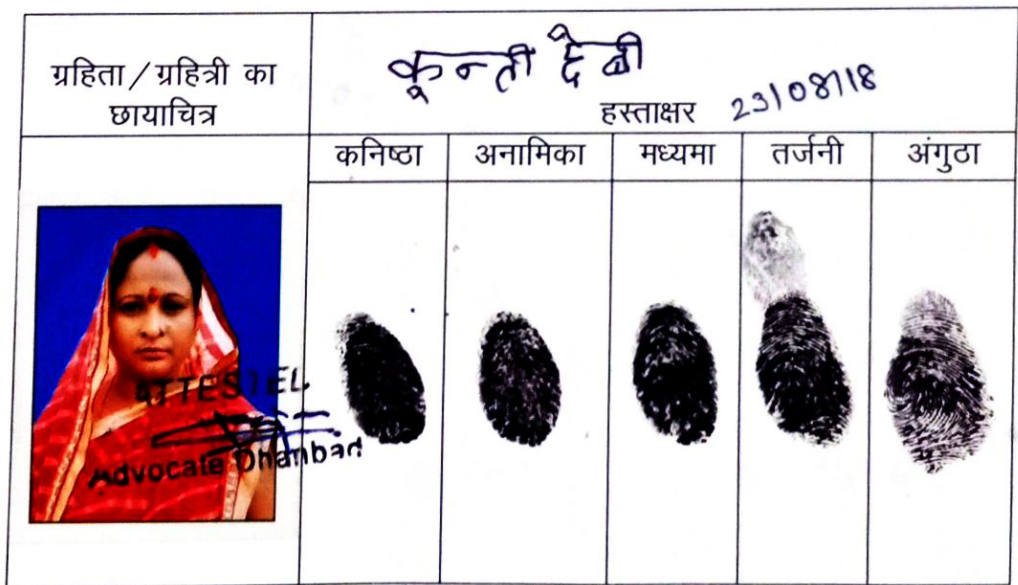 ग्रहिता / ग्रहित्री का
छायाचित्र
कुन्ती देवी
हस्ताक्षर 23/08/18
कनिष्ठा अनामिका मध्यमा तर्जनी अंगुठा
ATTESTED
Advocate Dhanbad